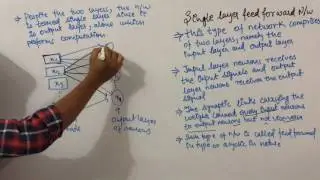 → Despite the two layers, the n/w
is termed single layer since it
is output layer alone which
performs computation.
x1
x2
x3
output layer
of neurons
Single layer feed forward N/W
→ This type of network comprises
of two layers, namely the
input layer and output layer
→ Input layer neurons receives
the input signals and output
layer neurons receive the output
signals.
→ The synaptic links carrying the
weights connect every input neurons
to output neurons but not
→ type of n/w is called feed forward
in type or acyclic in nature